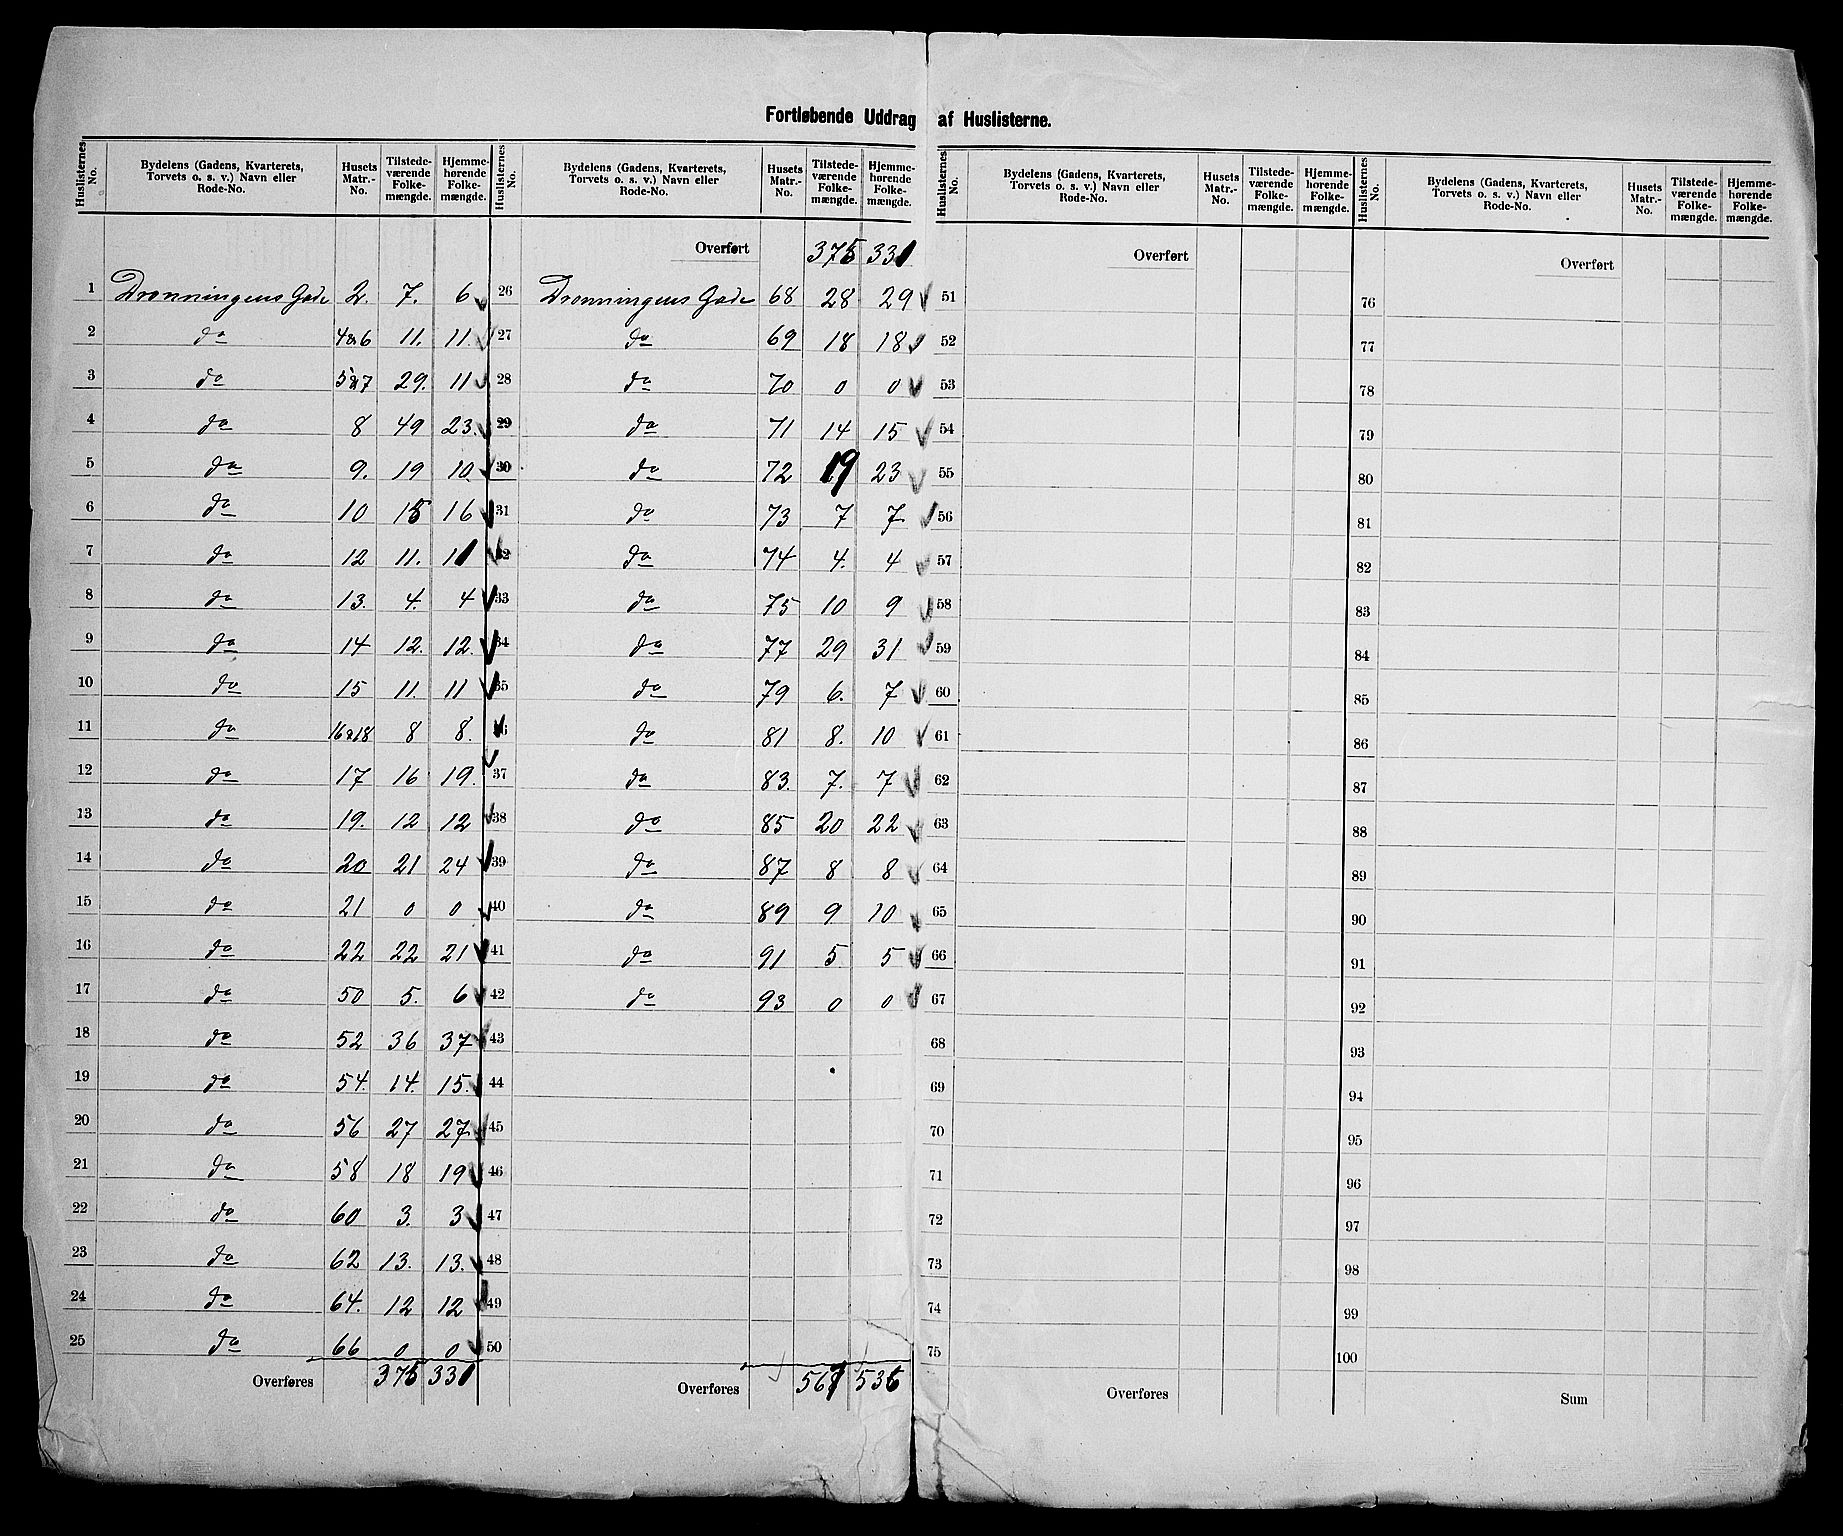 Fortløbende Uddrag af Huslisterne.
Huslisternes No. | Bydelens (Gadens, Kvarterets, Torvets o. s. v.) Navn eller Rode-No. | Husets Matr.-No. | Tilstedeværende Folkemængde. | Hjemmehørende Folkemængde.
1 Dronningens Gade 2. 7. 6
2 do 4&6 11. 11.
3 do 5&7 29. 11
4 do 8 49 23.
5 do 9. 19 10.
6 do 10 15 16
7 do 12 11. 11
8 do 13. 4. 4
9 do 14 12. 12.
10 do 15 11. 11
11 do 16&18 8 8.
12 do 17 16 19.
13 do 19. 12 12
14 do 20 21 24
15 do 21 0 0
16 do 22 22 21
17 do 50 5. 6
18 do 52 36 37
19 do 54. 14. 15.
20 do 56 27 27
21 do 58 18 19
22 do 60 3. 3
23 do 62 13. 13.
24 do 64. 12 12
25 do 66 0 0
Overføres 375 331
Huslisternes No. | Bydelens (Gadens, Kvarterets, Torvets o. s. v.) Navn eller Rode-No. | Husets Matr.-No. | Tilstedeværende Folkemængde. | Hjemmehørende Folkemængde.
Overført 375 331
26 Dronningens Gade 68 28 29
27 do 69 18 18
28 do 70 0 0
29 do 71 14 15
30 do 72 19 23
31 do 73 7 7
32 do 74 4. 4
33 do 75 10 9
34 do 77 29 31
35 do 79 6. 7
36 do 81 8. 10
37 do 83. 7. 7
38 do 85 20 22
39 do 87 8 8
40 do 89 9 10
41 do 91 5 5
42 do 93 0 0
43
44
45
46
47
48
49
50
Overføres 567 536
Huslisternes No. | Bydelens (Gadens, Kvarterets, Torvets o. s. v.) Navn eller Rode-No. | Husets Matr.-No. | Tilstedeværende Folkemængde. | Hjemmehørende Folkemængde.
Overført
51
52
53
54
55
56
57
58
59
60
61
62
63
64
65
66
67
68
69
70
71
72
73
74
75
Overføres
Huslisternes No. | Bydelens (Gadens, Kvarterets, Torvets o. s. v.) Navn eller Rode-No. | Husets Matr.-No. | Tilstedeværende Folkemængde. | Hjemmehørende Folkemængde.
Overført
76
77
78
79
80
81
82
83
84
85
86
87
88
89
90
91
92
93
94
95
96
97
98
99
100
Sum